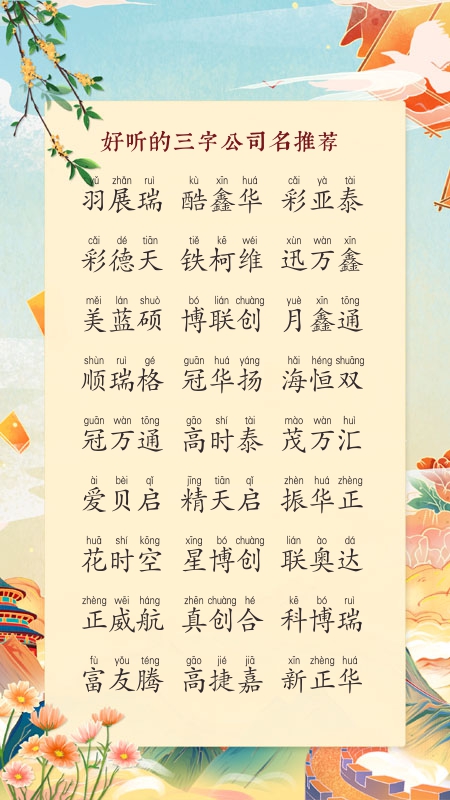 好听的三字公司名推荐
yǔ zhǎn ruì kù xīn huá cǎi yà tài
羽展瑞 酷鑫华 彩亚泰
cǎi dé tiān tiě kē wéi xùn wàn xīn
彩德天 铁柯维 迅万鑫
měi lán shuò bó lián chuàng yuè xīn tōng
美蓝硕 博联创 月鑫通
shùn ruì gé guān huá yáng hǎi héng shuāng
顺瑞格 冠华扬 海恒双
guān wàn tōng gāo shí tài mào wàn huì
冠万通 高时泰 茂万汇
ài bèi qǐ jīng tiān qǐ zhèn huá zhèng
爱贝启 精天启 振华正
huā shí kōng xīng bó chuàng lián ào dá
花时空 星博创 联奥达
zhèng wēi háng zhēn chuàng hé kē bó ruì
正威航 真创合 科博瑞
fù yǒu téng gāo jié jiā xīn zhèng huá
富友腾 高捷嘉 新正华